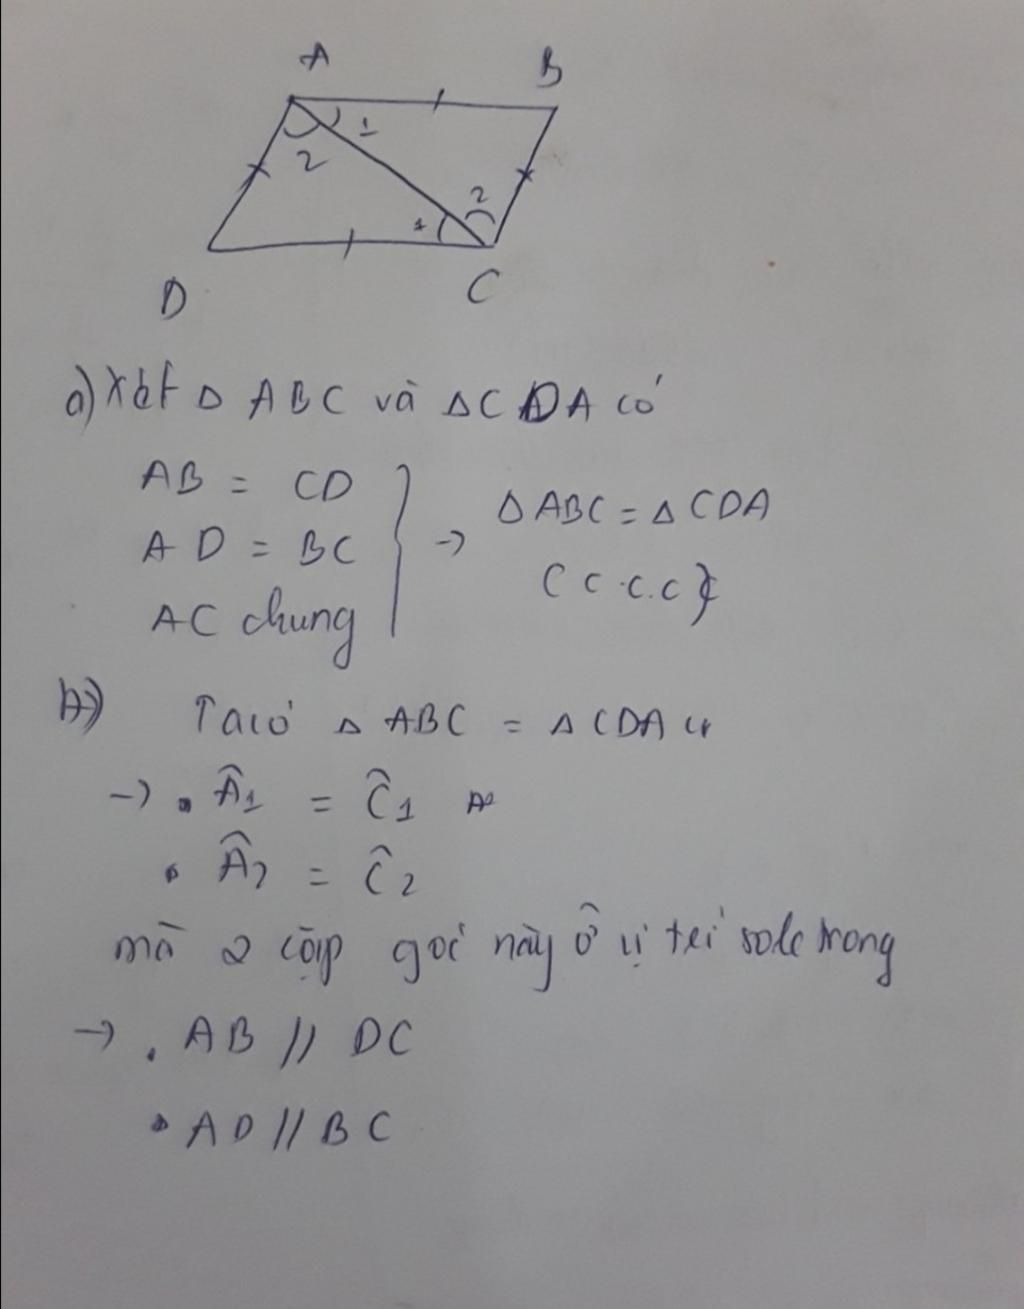 A
B
1
2
2
1
D
C
a) Xét Δ ABC và ΔCDA có
AB = CD
AD = BC
AC chung
→ Δ ABC = Δ CDA
(c.c.c)
b) Ta có Δ ABC = Δ CDA
→ . Â1 = Ĉ1
. Â2 = Ĉ2
mà 2 cặp góc này ở vị trí sole trong
→ . AB // DC
. AD // BC